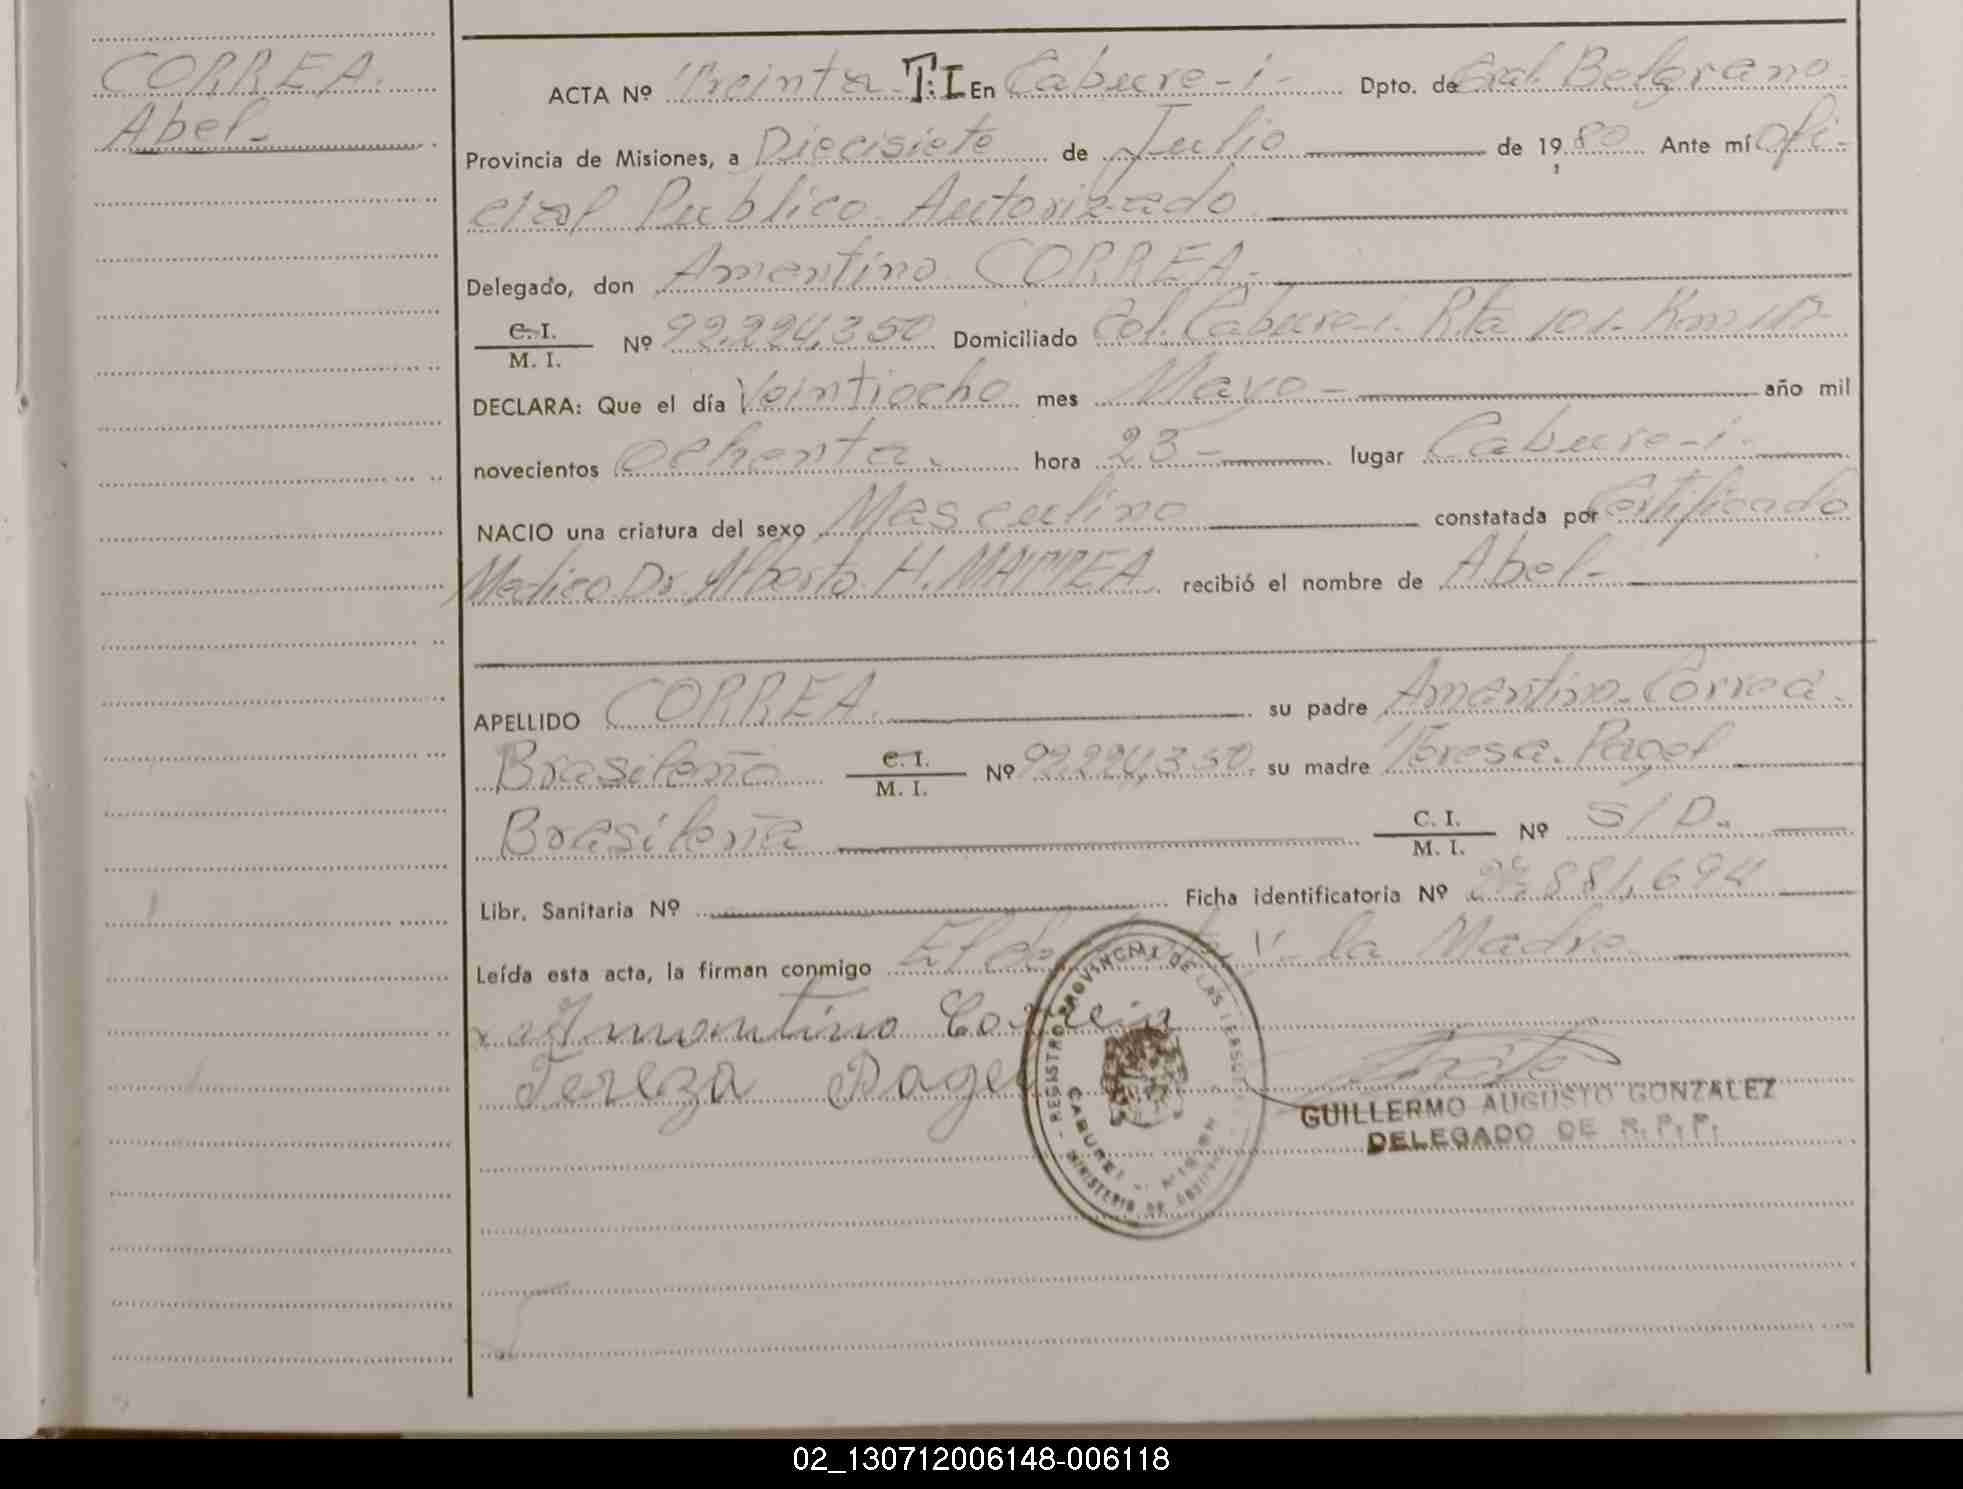 CORREA.
Abel-
ACTA Nº Treinta T:I En Cabure-i- Dpto. de Gral. Belgrano-
Provincia de Misiones, a Diecisiete de Julio de 1980 Ante mí Ofi-
cial Publico Autorizado
Delegado, don Amantino CORREA-
C. I.
M. I. Nº 92.224.350 Domiciliado Col. Cabure-i- Rta 101- Km
DECLARA: Que el día Veintiocho mes Mayo- año mil
novecientos Ochenta. hora 23- lugar Cabure-i-
NACIO una criatura del sexo Masculino constatada por Certificado
Medico Dr. Alberto H. recibió el nombre de Abel-
APELLIDO CORREA. su padre Amantino Correa-
Brasileño C. I.
M. I. Nº 92.224.350. su madre Teresa. Pagel
Brasileña C. I.
M. I. Nº S/D.
Libr. Sanitaria Nº Ficha identificatoria Nº 881.694
Leída esta acta, la firman conmigo El la Madre
x Amantino Correia
Tereza Pagel
REGISTRO PROVINCIAL DE LAS PERSO
CABUREI
MINISTERIO DE
GUILLERMO AUGUSTO GONZALEZ
DELEGADO DE R. P. P.
02_130712006148-006118